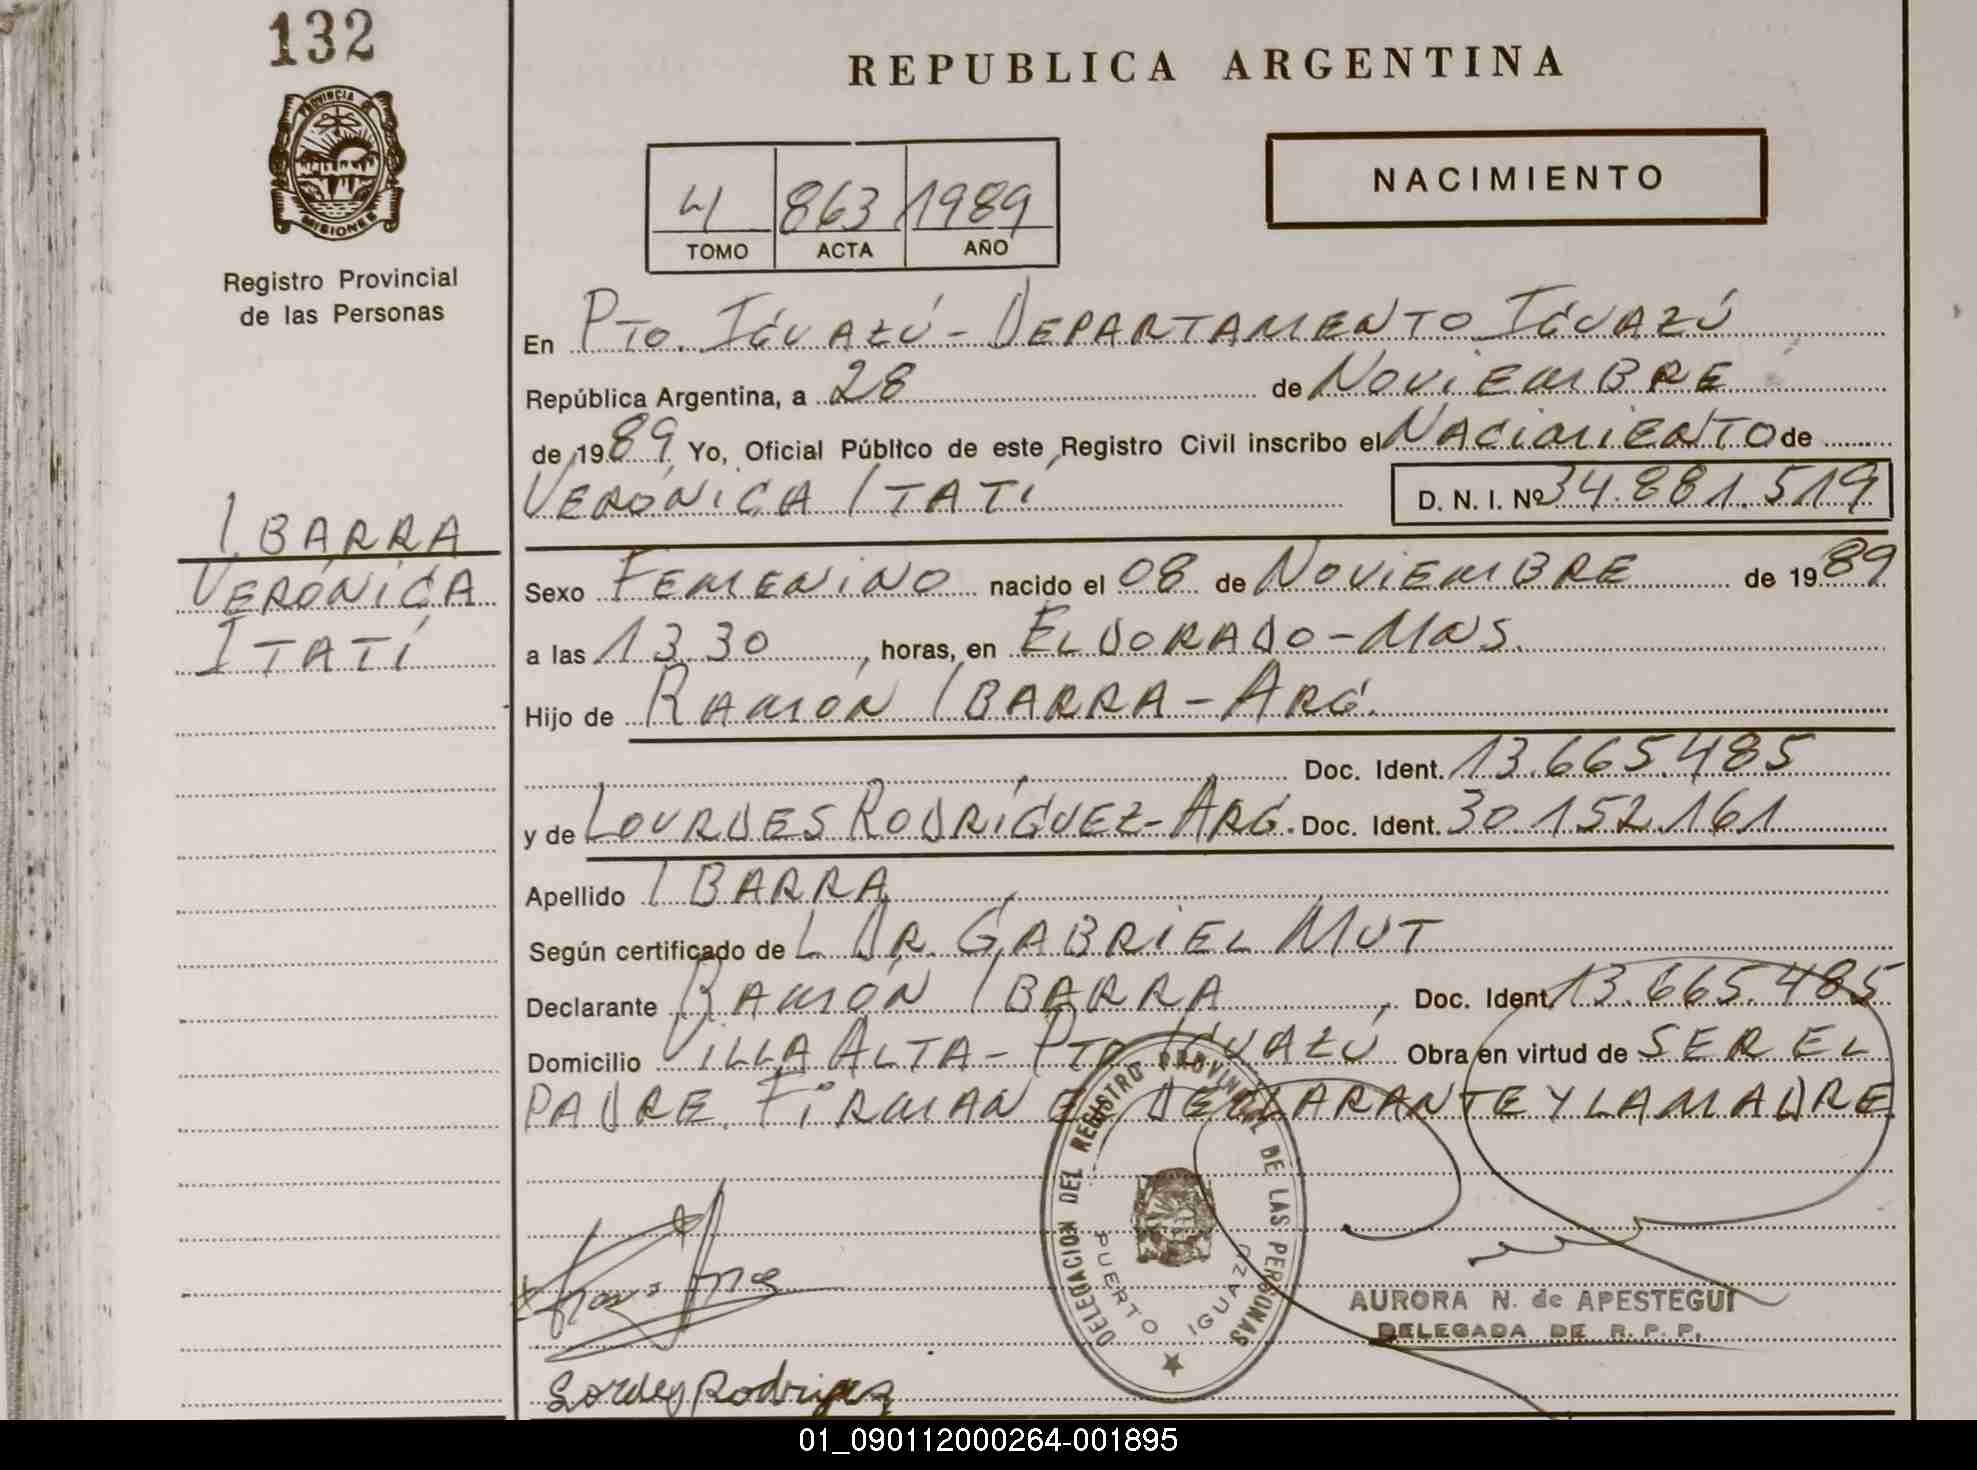 132
PROVINCIA DE
MISIONES
Registro Provincial
de las Personas
IBARRA
VERÓNICA
ITATÍ
REPUBLICA ARGENTINA
NACIMIENTO
4 863 1989
TOMO ACTA AÑO
En PTO. IGUAZÚ - DEPARTAMENTO IGUAZÚ
República Argentina, a 28 de NOVIEMBRE
de 1989 Yo, Oficial Público de este Registro Civil inscribo el NACIMIENTO de
VERÓNICA ITATÍ D. N. I. Nº 34.881.519
Sexo FEMENINO nacido el 08 de NOVIEMBRE de 1989
a las 13.30, horas, en ELDORADO - MNS.
Hijo de RAMÓN IBARRA - ARG.
Doc. Ident. 13.665.485
y de LOURDES RODRÍGUEZ - ARG. Doc. Ident. 30.152.161
Apellido IBARRA
Según certificado de L DR. GABRIEL MUT
Declarante RAMÓN IBARRA, Doc. Ident. 13.665.485
Domicilio VILLA ALTA - PTO IGUAZÚ Obra en virtud de SER EL
PADRE. FIRMAN EL DECLARANTE Y LA MADRE
DELEGACION DEL REGISTRO PROVINCIAL DE LAS PERSONAS
PUERTO IGUAZU
AURORA N. de APESTEGUI
DELEGADA DE R. P. P.
Lordes Rodriguez
01_090112000264-001895